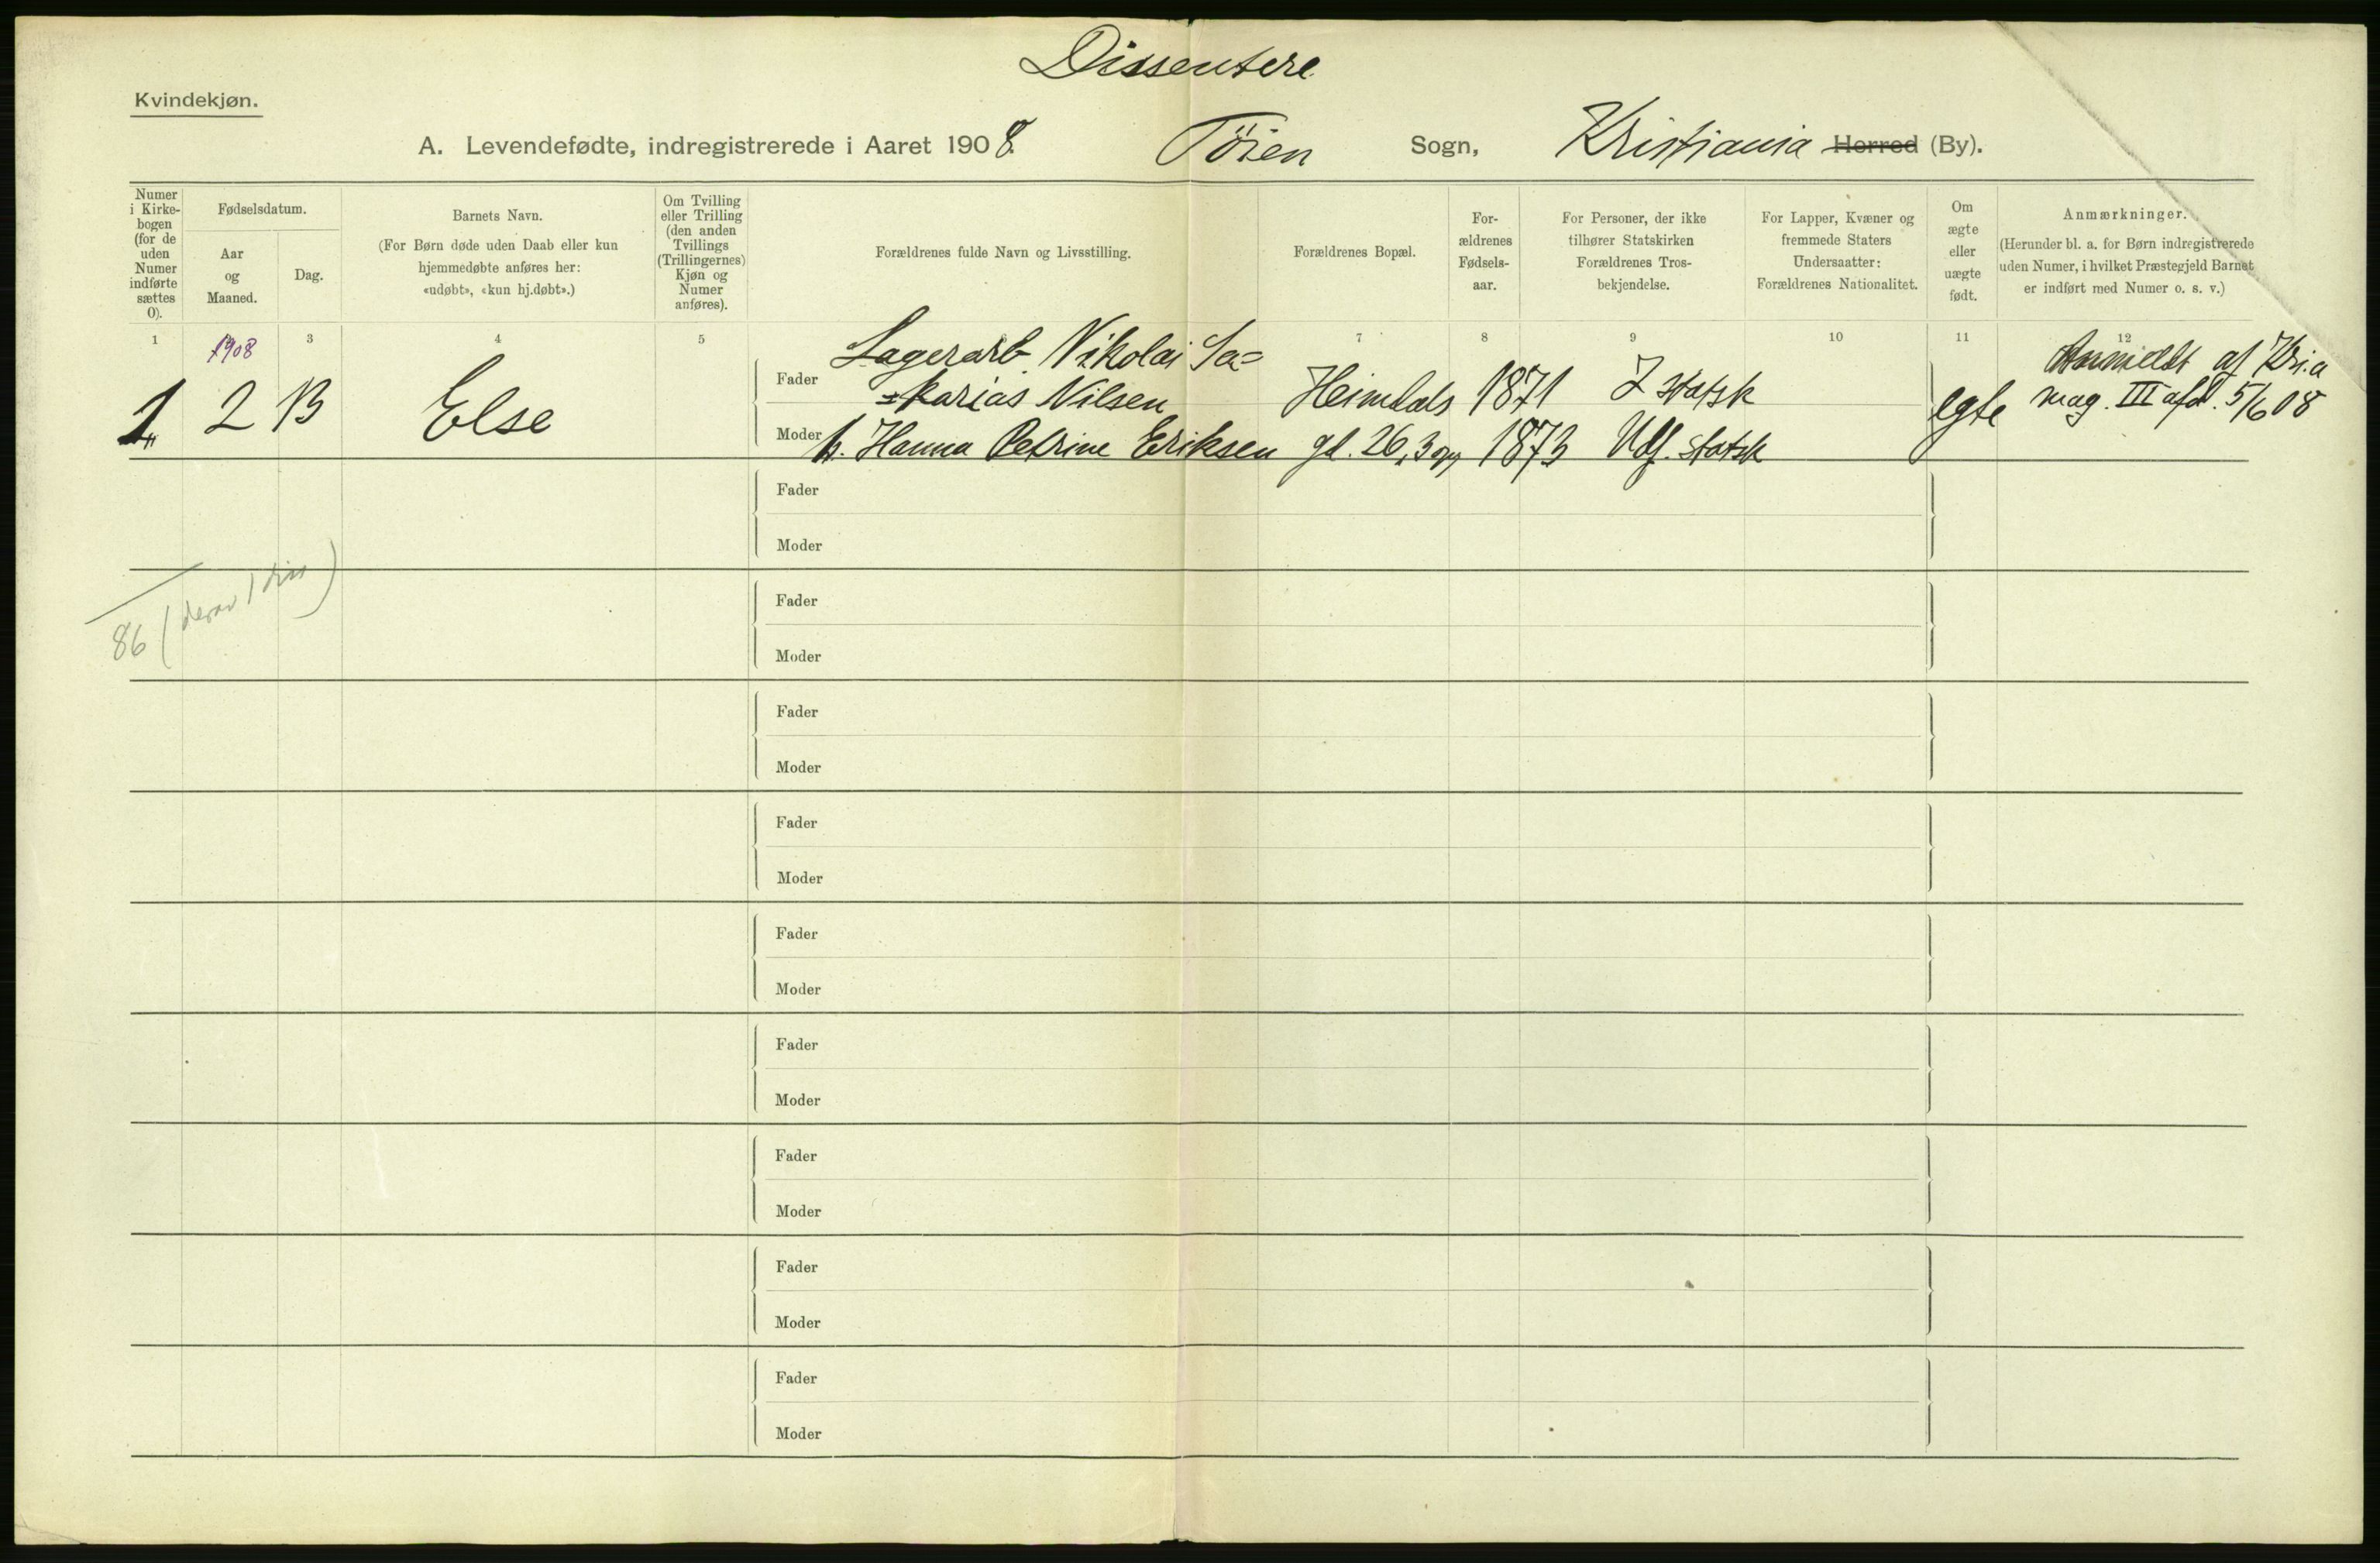 Dissentere
Kvindekjøn.
A. Levendefødte, indregistrerede i Aaret 1908. Töien Sogn, Kristiania Herred (By).
Numer i Kirkebogen (for de uden Numer indførte sættes 0).
Fødselsdatum.
Aar og Maaned.
Dag.
Barnets Navn.
(For Børn døde uden Daab eller kun hjemmedøbte anføres her: «udøbt», «kun hj.døbt».)
Om Tvilling eller Trilling (den anden Tvillings (Trillingernes) Kjøn og Numer anføres).
Forældrenes fulde Navn og Livsstilling.
Forældrenes Bopæl.
Forældrenes Fødselsaar.
For Personer, der ikke tilhører Statskirken Forældrenes Trosbekjendelse.
For Lapper, Kvæner og fremmede Staters Undersaatter: Forældrenes Nationalitet.
Om ægte eller uægte født.
Anmærkninger.
(Herunder bl. a. for Børn indregistrerede uden Numer, i hvilket Præstegjeld Barnet er indført med Numer o. s. v.)
1 3 4 5 7 8 9 10 11 12
1908
1 2 13 Else
Fader Lagerarb. Nikolai Sa=
=karias Nilsen Heimdals 1871 statsk
Moder h. Hanna Petrine Eriksen gd. 26, 3 opg 1873 Udf. statsk
egte
Anmeldt af Kri.a
mag. III afd. 5/6 08
Fader
Moder
86 (derav 1 diss)
Fader
Moder
Fader
Moder
Fader
Moder
Fader
Moder
Fader
Moder
Fader
Moder
Fader
Moder
Fader
Moder